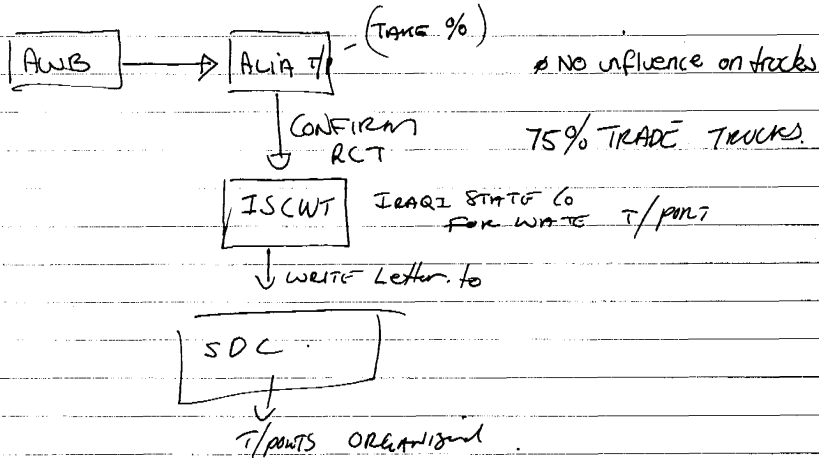 (TAKE %)
AWB
ALIA T/
ø No influence on trucks
CONFIRM
RCT
75% TRADE TRUCKS.
ISCWT
IRAQI STATE Co
FOR WATE T/PORT
WRITE Letter. to
SDC.
T/PORTS ORGANIZED.